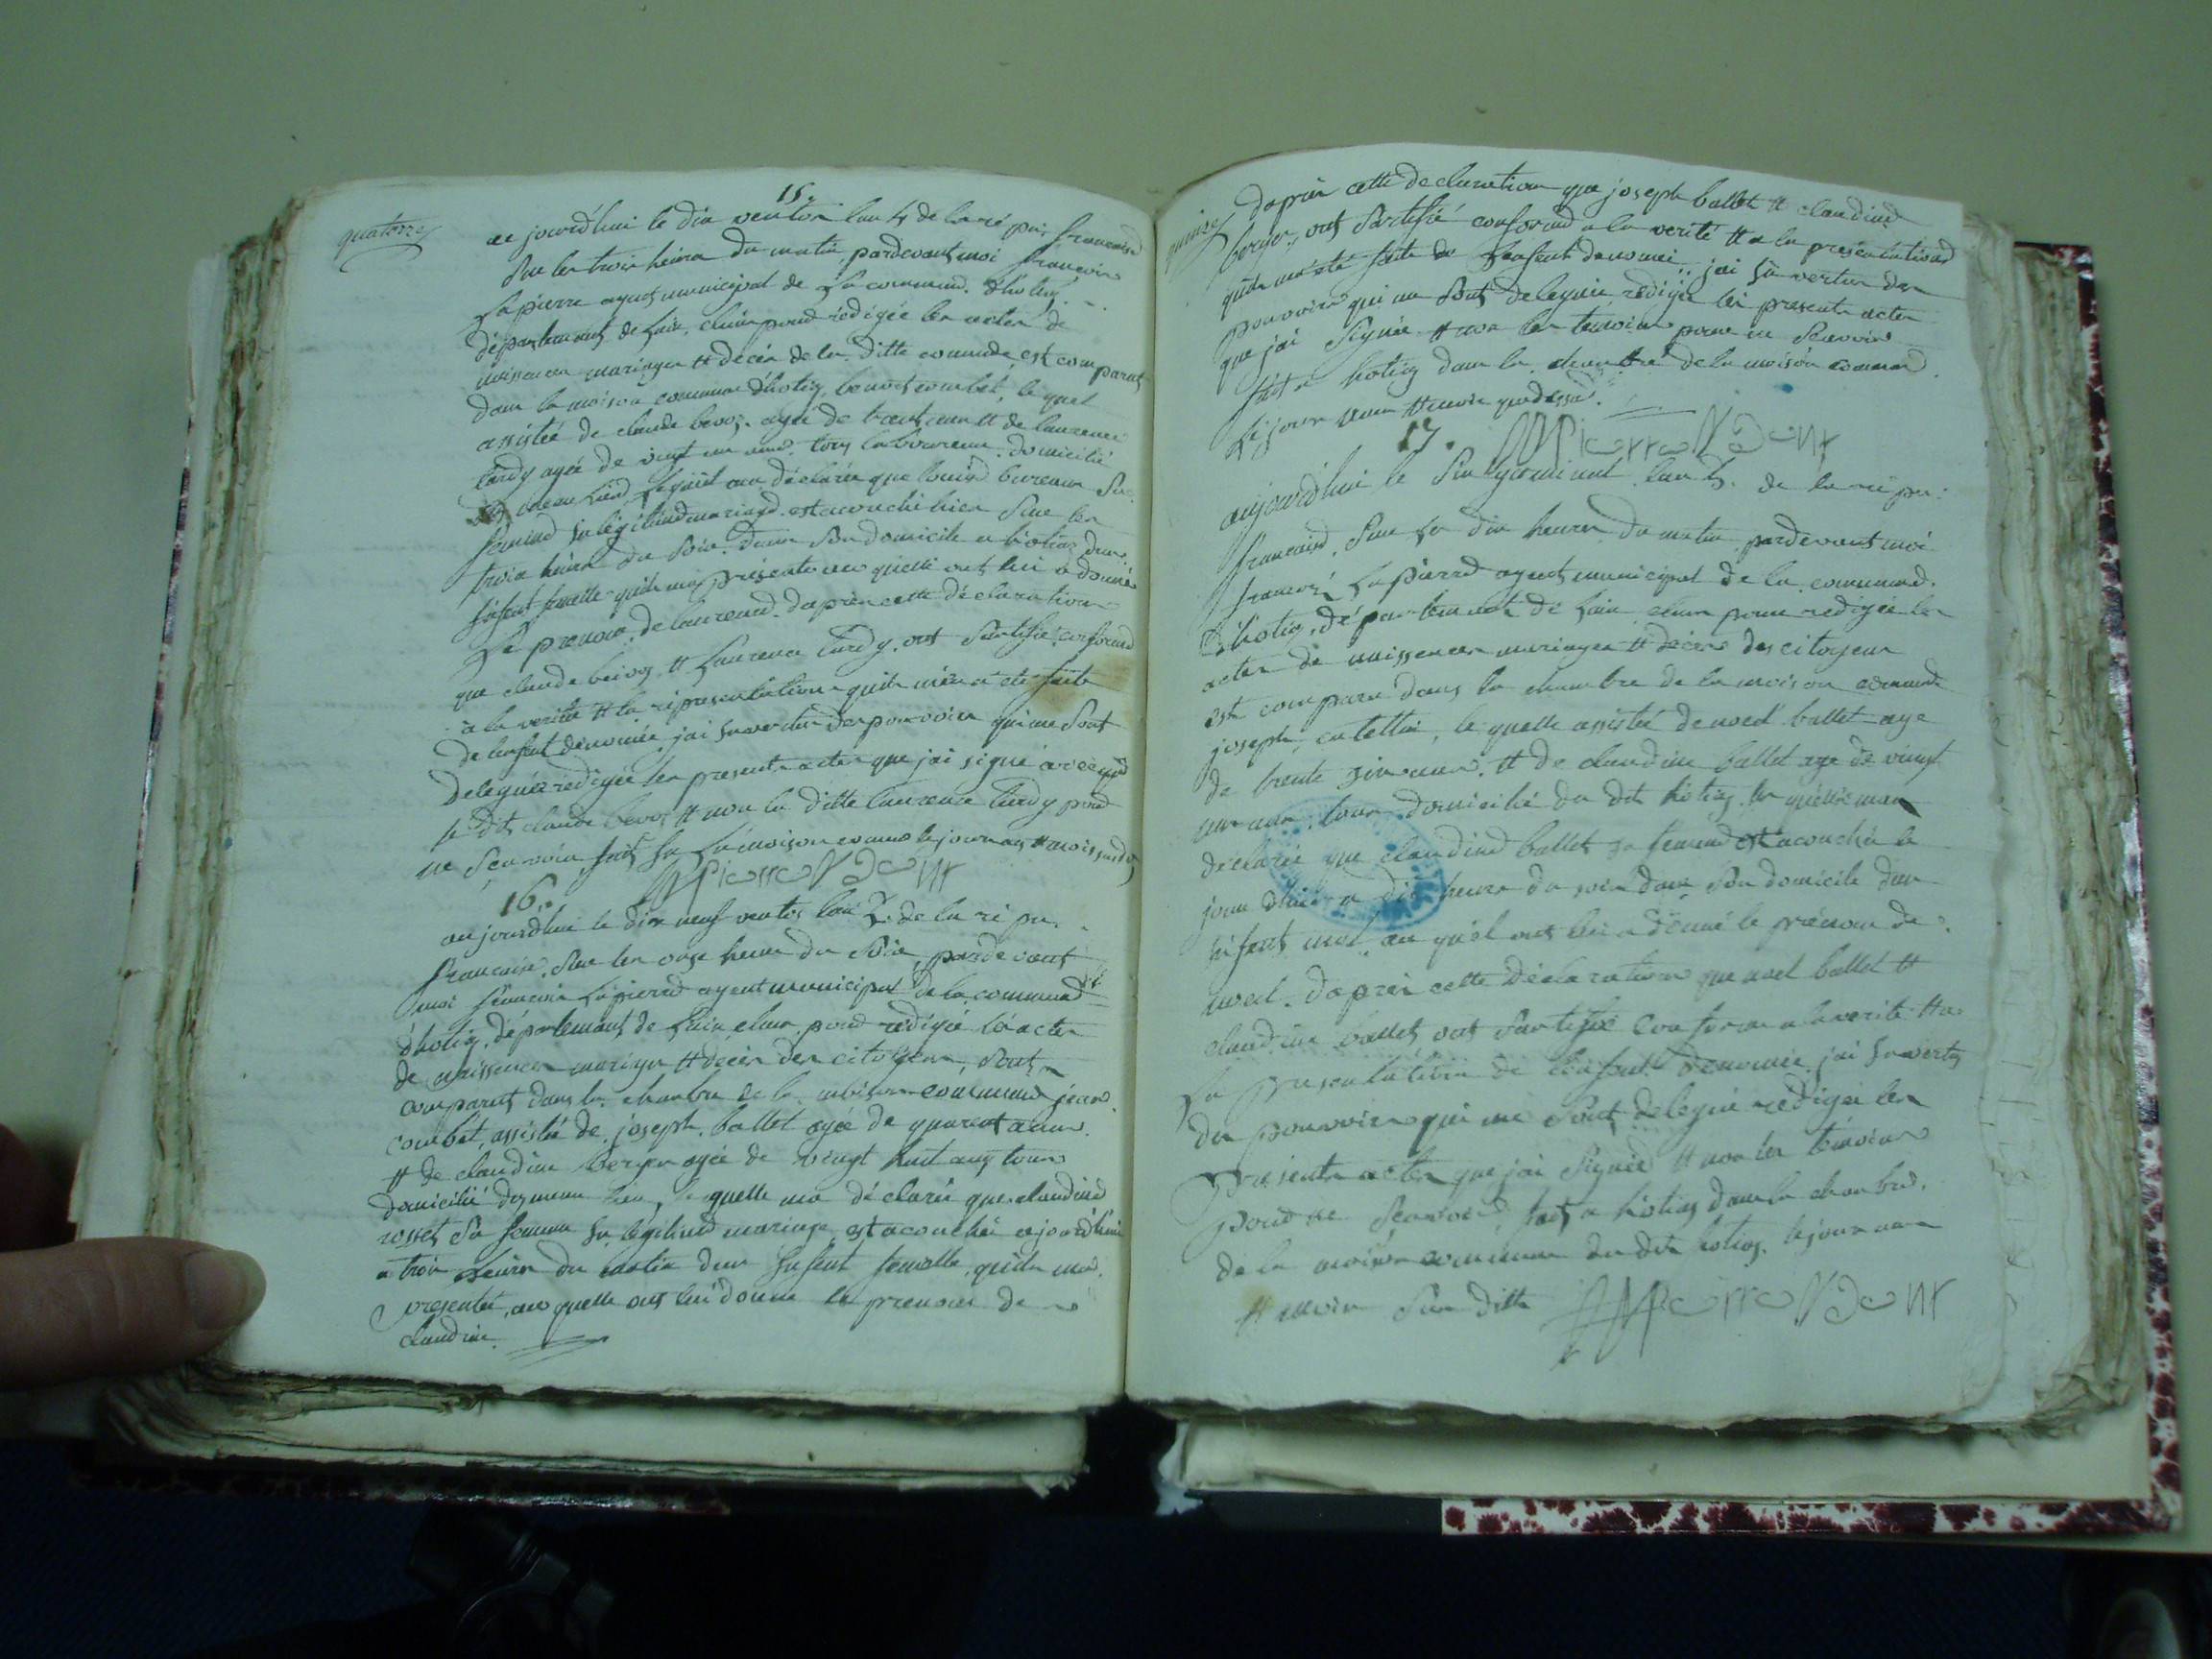 quatorze
15.
aujourdhui le dix ventos lan 7 de la ré pu: francaise
sur les trois heures du matin, pardevant moi francois
Lapierre agent municipal de la commune dhotig
département de Lain, elus pour rédigée les actes de
naissences mariages et décès de la ditte commune, est comparut
dans la maison commune dhotig, benoit combet, le quel
assistée de claude bevoz agée de trent ans et de laurence
tardy agée de vingt un ans tous laboureurs domicilié
du meme lieu, lequel ma déclarée que bureaux sa
femme en légitime mariage est acouché hier sur les
trois heures du soir dans son domicile a hotig dun
enfent femelle quil ma présenté au quelle ont lui a donné
le prenom de laurence. daprès cette déclaration
que claude bevoz et Laurence tardy ont sertifié conforme
a la verité et la représentation quil ma été faite
de lenfent denomée, jai en vertu des pouvoirs qui me sont
delegués rédigée les presents actes que jai signé avec
le dit claude bevoz et non la ditte laurence tardy pour
ne scavoir fait en la maison commune le jour an et mois susdit
16.
aujourdhui le dix neuf ventos lan 7. de la ré pu.
francaise, sur les onze heures du soir, pardevant
moi francois Lapierre agent municipal de la commune
dhotig, département de Lain elus pour rédigée les actes
de naissences mariages et décès des citoyens, sont
comparut dans la chambre de la maison commune jean
combet, assistée de joseph ballet agée de quarent ans
et de claudine berger agée de vingt huit ans tous
domicilié du meme lieu, le quelle ma déclarée que claudine
rosset sa femme en légitime mariage, est acouchée aujourdhui
a trois heures du matin dun enfent femelle, quil ma
presenté, au quelle ont lui donne le prenom de
claudine.
quinze
daprès cette declaration que joseph ballet et claudine
berger, ont sertifié conforme a la verité et a la presentation
quil ma été faite de lenfent denomée, jai en vertu des
pouvoirs qui me sont deleguée rédigée les presents actes
que jai signée et non les temoins pour ne scavoir
fait a hotig dans la chambre de la maison commune
le jour an et mois que dessus.
17.
aujourdhui le germinal lan 7. de la ré pu:
francaise, sur les dix heures du matin pardevant moi
francois Lapierre agent municipal de la commune
dhotig, département de Lain elus pour redigée les
actes de naissences mariages et décès des citoyens
est comparu dans la chambre de la maison commune
joseph catellin, le quelle assistée de noel ballet age
de trente ans et de claudine ballet age de vingt
ans, tous domicilié du dit hotig, le quelle ma
déclarée que claudine ballet sa femme est acouchée a
jourdhui a dix heures du soir dans son domicile dun
enfent mal au quel ont lui a donné le prénom de
noel. daprès cette déclaration que noel ballet et
claudine ballet ont sertifié conforme a la verité et a
la presentation de lenfent denomée jai en vertu
des pouvoirs qui me sont delegué redigée les
presents actes que jai signée et non les témoins
pour ne scavoir, fait a hotig dans la chambre
de la maison commune du dit hotig, le jour an
et mois sus ditte